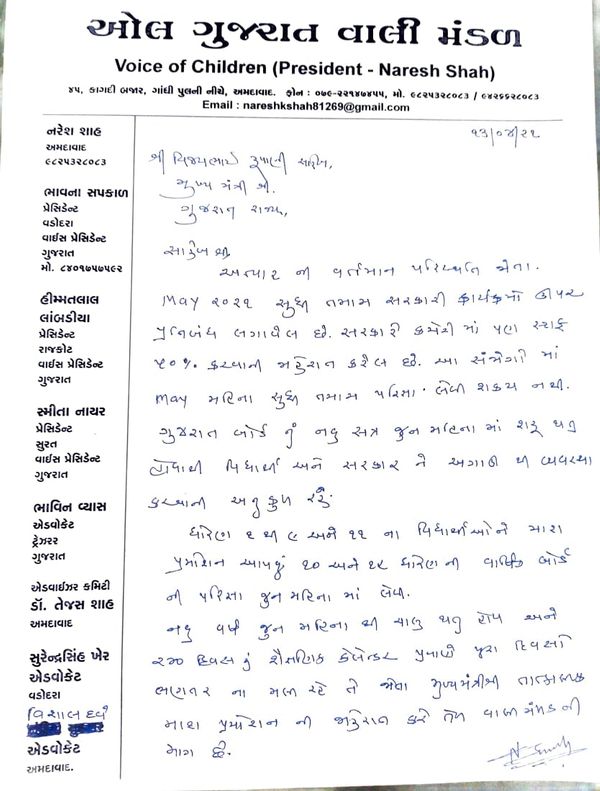 ઓલ ગુજરાત વાલી મંડળ
Voice of Children (President - Naresh Shah)
૪૫, કાગદી બજાર, ગાંધી પુલની નીચે, અમદાવાદ. ફોન : ૦૭૯-૨૨૧૪૭૪૫૫, મો. ૯૮૨૫૩૨૮૦૮૩ / ૯૪૨૬૬૨૮૦૮૩
Email : nareshkshah81269@gmail.com
નરેશ શાહ
અમદાવાદ
૯૮૨૫૩૨૮૦૮૩
ભાવના સપકાળ
પ્રેસિડેન્ટ
વડોદરા
વાઈસ પ્રેસિડેન્ટ
ગુજરાત
મો. ૮૪૦૧૭૫૭૫૯૨
હીમ્મતલાલ
લાંબડીયા
પ્રેસિડેન્ટ
રાજકોટ
વાઈસ પ્રેસિડેન્ટ
ગુજરાત
સ્મીતા નાયર
પ્રેસિડેન્ટ
સુરત
વાઈસ પ્રેસિડેન્ટ
ગુજરાત
ભાવિન વ્યાસ
એડવોકેટ
ટ્રેઝરર
ગુજરાત
એડવાઈઝર કમિટી
ડૉ. તેજસ શાહ
અમદાવાદ
સુરેન્દ્રસિંહ ખેર
એડવોકેટ
વડોદરા
વિશાલ દવે
એડવોકેટ
અમદાવાદ.
૧૩/૦૪/૨૧
શ્રી વિજયભાઈ રૂપાણી સાહિબ,
મુખ્ય મંત્રી શ્રી.
ગુજરાત રાજ્ય,
સાહેબ શ્રી
અત્યાર ની વર્તમાન પરિસ્થતિ જોતા.
May ૨૦૨૧ સુધી તમામ સરકારી કાર્યક્રમો ઉપર
પ્રતિબંધ લગાવેલ છે. સરકારી કચેરી માં પણ સ્ટાફ
૫૦% કરવાની જાહેરાત કરેલ છે. આ સંજોગો માં
May મહિના સુધી તમામ પરિક્ષા લેવી શક્ય નથી.
ગુજરાત બોર્ડ નું નવુ સત્ર જુન મહિના માં શરૂ થતુ
હોવાથી વિધાર્થી અને સરકાર ને અગાઉ થી વ્યવસ્થા
કરવાની અનુકુળ રહે.
ધોરણ ૧ થી ૯ અને ૧૧ ના વિધાર્થીઓને માસ
પ્રમોશન આપવું ૧૦ અને ૧૨ ધોરણ ની વાર્ષિક બોર્ડ
ની પરિક્ષા જુન મહિના માં લેવી.
નવુ વર્ષ જુન મહિના થી ચાલુ થતુ હોય અને
૨૪૦ દિવસ નું શૈક્ષણિક કેલેન્ડર પ્રમાણે પુરા દિવસો
ભણતર ના મળી રહે તે જોવા મુખ્યમંત્રીશ્રી તાત્કાલિક
માસ પ્રમોશન ની જાહેરાત કરે તેવ વાલી મંડળ ની
માંગ છે.